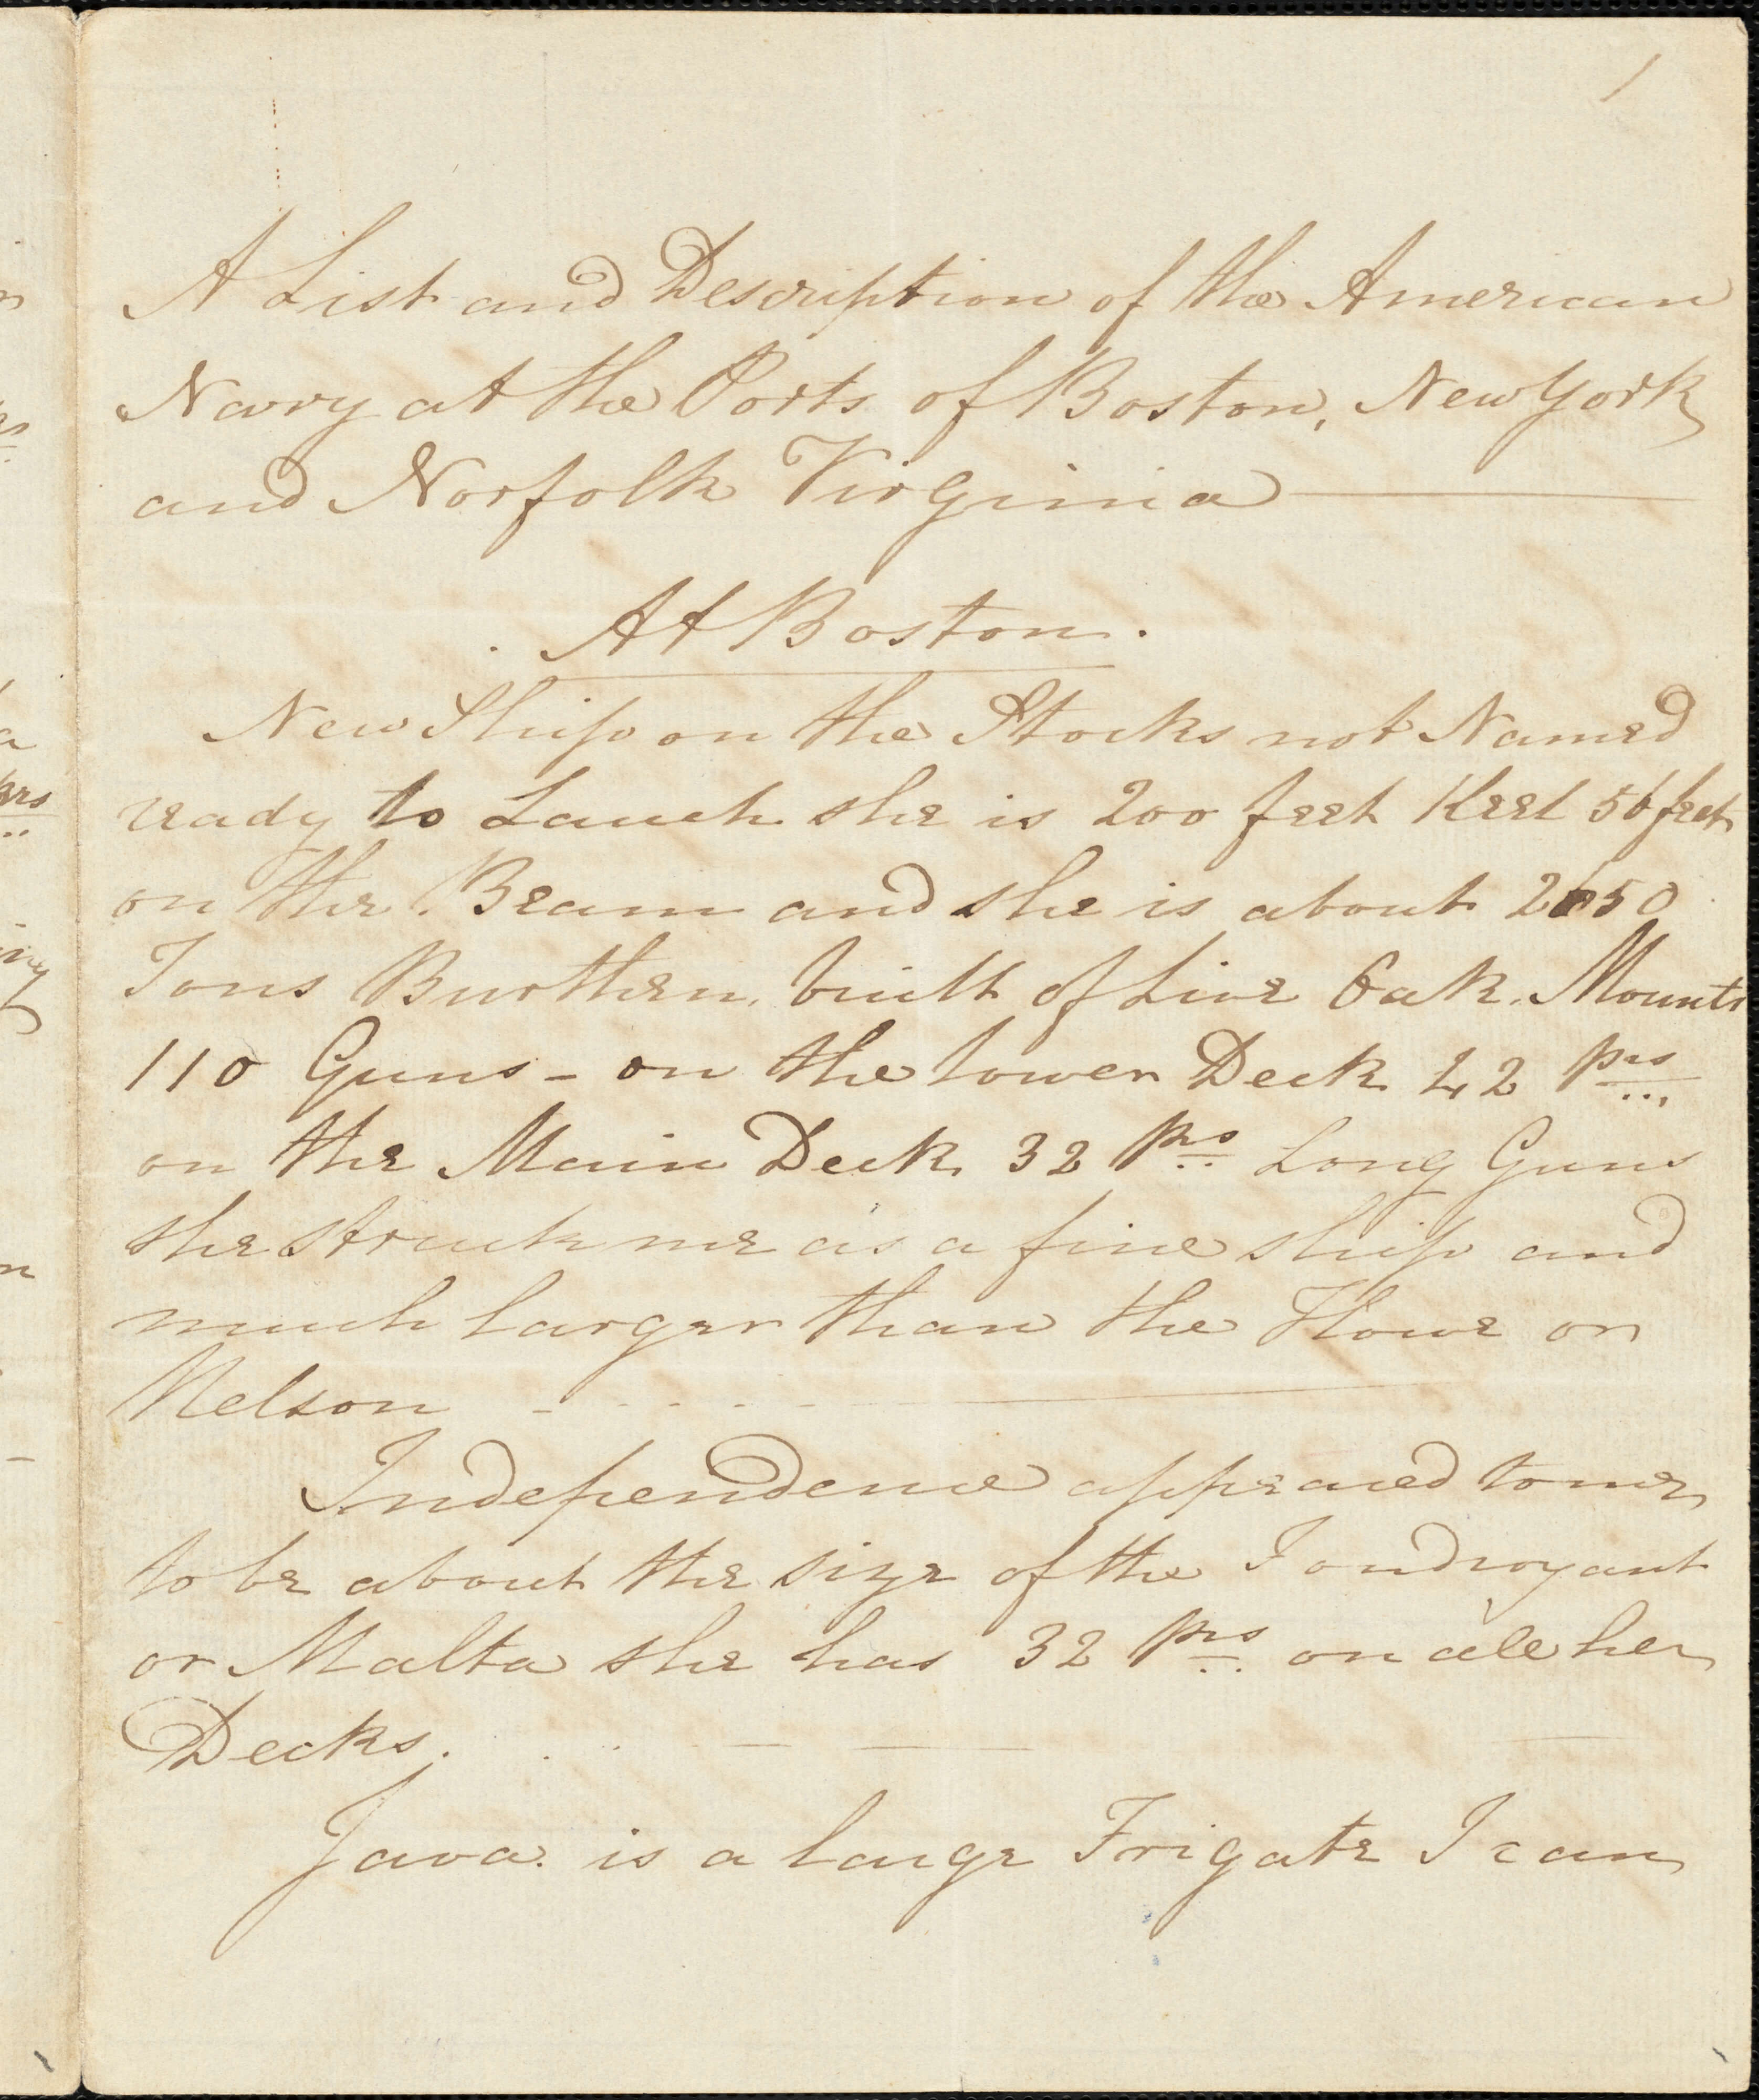 1
A List and Description of the American
Navy at the Ports of Boston, New York
and Norfolk Virginia
At Boston.
New Ship on the Stocks not Named
ready to Lauch she is 200 feet Keel 56 feet
on the Beam and she is about 2650
Tons Burthen, built of Live Oak. Mounts
110 Guns - on the lower Deck 42 prs
on the Main Deck 32 prs Long Guns
she struck me as a fine ship and
much larger than the Howe or
Nelson
Independence appeared to me
to be about the size of the Foudroyant
or Malta she has 32 prs on all her
Decks.
Java. is a large Frigate I can